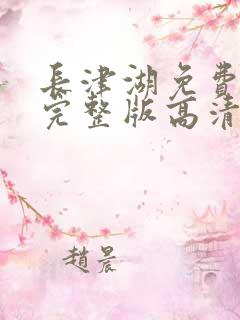 長津湖免費
完整版高清
趙晨